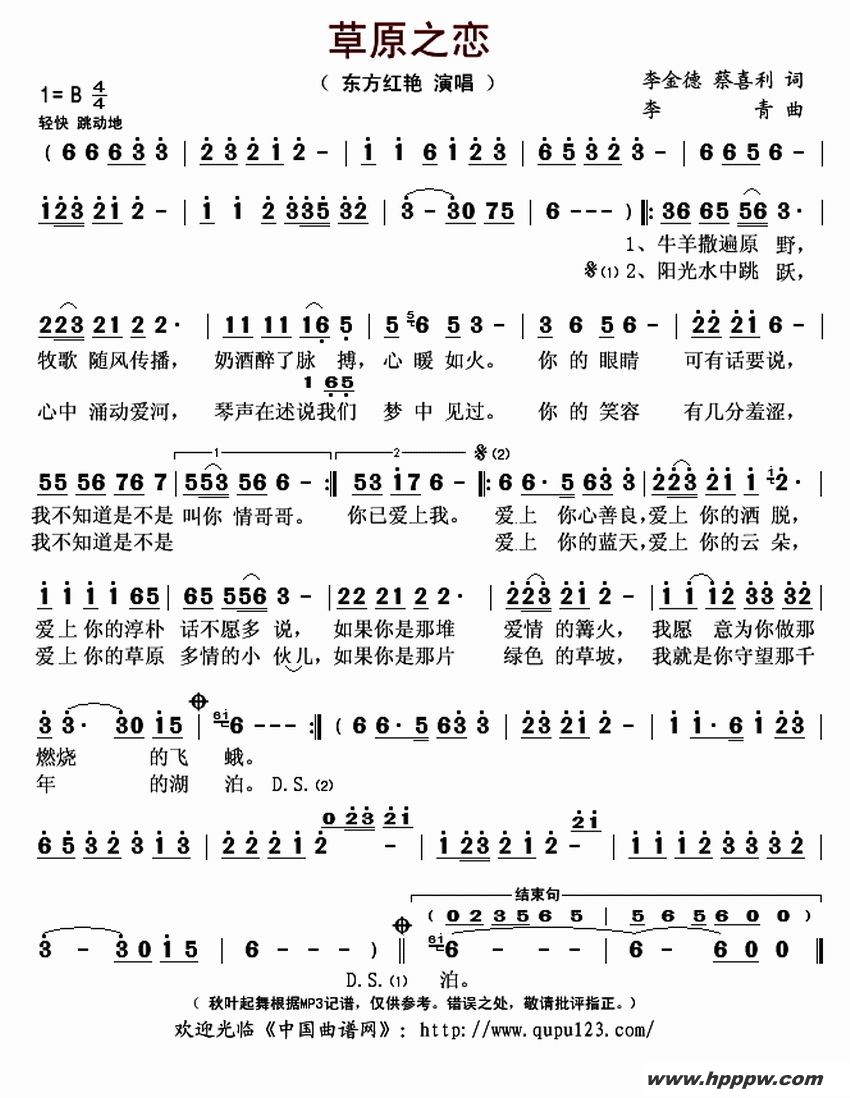 草原之恋
（ 东方红艳 演唱 ）
李金德 蔡喜利 词
李 青 曲
1= B 4/4
轻快 跳动地
( 6 6 6 3 3 | 2 3 2 1 2 - | 1 1 6 1 2 3 | 6 5 3 2 3 - | 6 6 5 6 - |
1 2 3 2 1 2 - | 1 1 2 3 3 5 3 2 | 3 - 3 0 7 5 | 6 - - ) ‖: 3 6 6 5 5 6 3 · |
1、牛羊撒遍原 野，
𝄋(1) 2、阳光水中跳 跃，
2 2 3 2 1 2 2 · | 1 1 1 1 1 6 5 | 5 5 6 5 3 - | 3 6 5 6 - | 2 2 2 1 6 - |
牧歌 随风传播， 奶酒醉了脉 搏，心 暖 如火。 你 的 眼睛 可有话要说，
1 6 5
心中 涌动爱河， 琴声在述说我们 梦 中 见过。 你 的 笑容 有几分羞涩，
1 2 𝄋(2)
5 5 5 6 7 6 7 | 5 5 3 5 6 6 - :‖ 5 3 1 7 6 - ‖: 6 6 · 5 6 3 3 | 2 2 3 2 1 1 i 2 · |
我不知道是不是 叫你 情哥哥。 你已爱上我。 爱上 你心善良，爱上 你的洒 脱，
我不知道是不是 爱上 你的蓝天，爱上 你的云 朵，
1 1 1 1 6 5 | 6 5 5 5 6 3 - | 2 2 2 1 2 2 - | 2 2 3 2 1 2 - | 1 1 1 2 3 3 3 2 |
爱上 你的淳朴 话不愿多 说， 如果你是那堆 爱情 的篝火， 我愿 意为你做那
爱上 你的草原 多情的小 伙儿，如果你是那片 绿色 的草坡， 我就是你守望那千
3 3 · 3 0 1 5 | 6 i 6 - - - :‖ ( 6 6 · 5 6 3 3 | 2 2 3 2 1 2 - | 1 1 · 6 1 2 3 |
燃烧 的飞 蛾。
年 的湖 泊。 D.S.(2)
0 2 3 2 1
2 1
6 5 3 2 3 1 3 | 2 2 2 1 2 - - | 1 2 3 2 1 2 - | 1 1 1 2 3 3 3 2 |
结束句
( 0 2 3 5 6 5 | 5 6 5 6 0 0 )
3 - 3 0 1 5 | 6 - - - ) ‖ 6 i 6 - - - | 6 - 6 0 0 ‖
D.S.(1) 泊。
（ 秋叶起舞根据MP3记谱，仅供参考。错误之处，敬请批评指正。）
欢迎光临《中国曲谱网》：http://www.qupu123.com/
www.hpppw.com